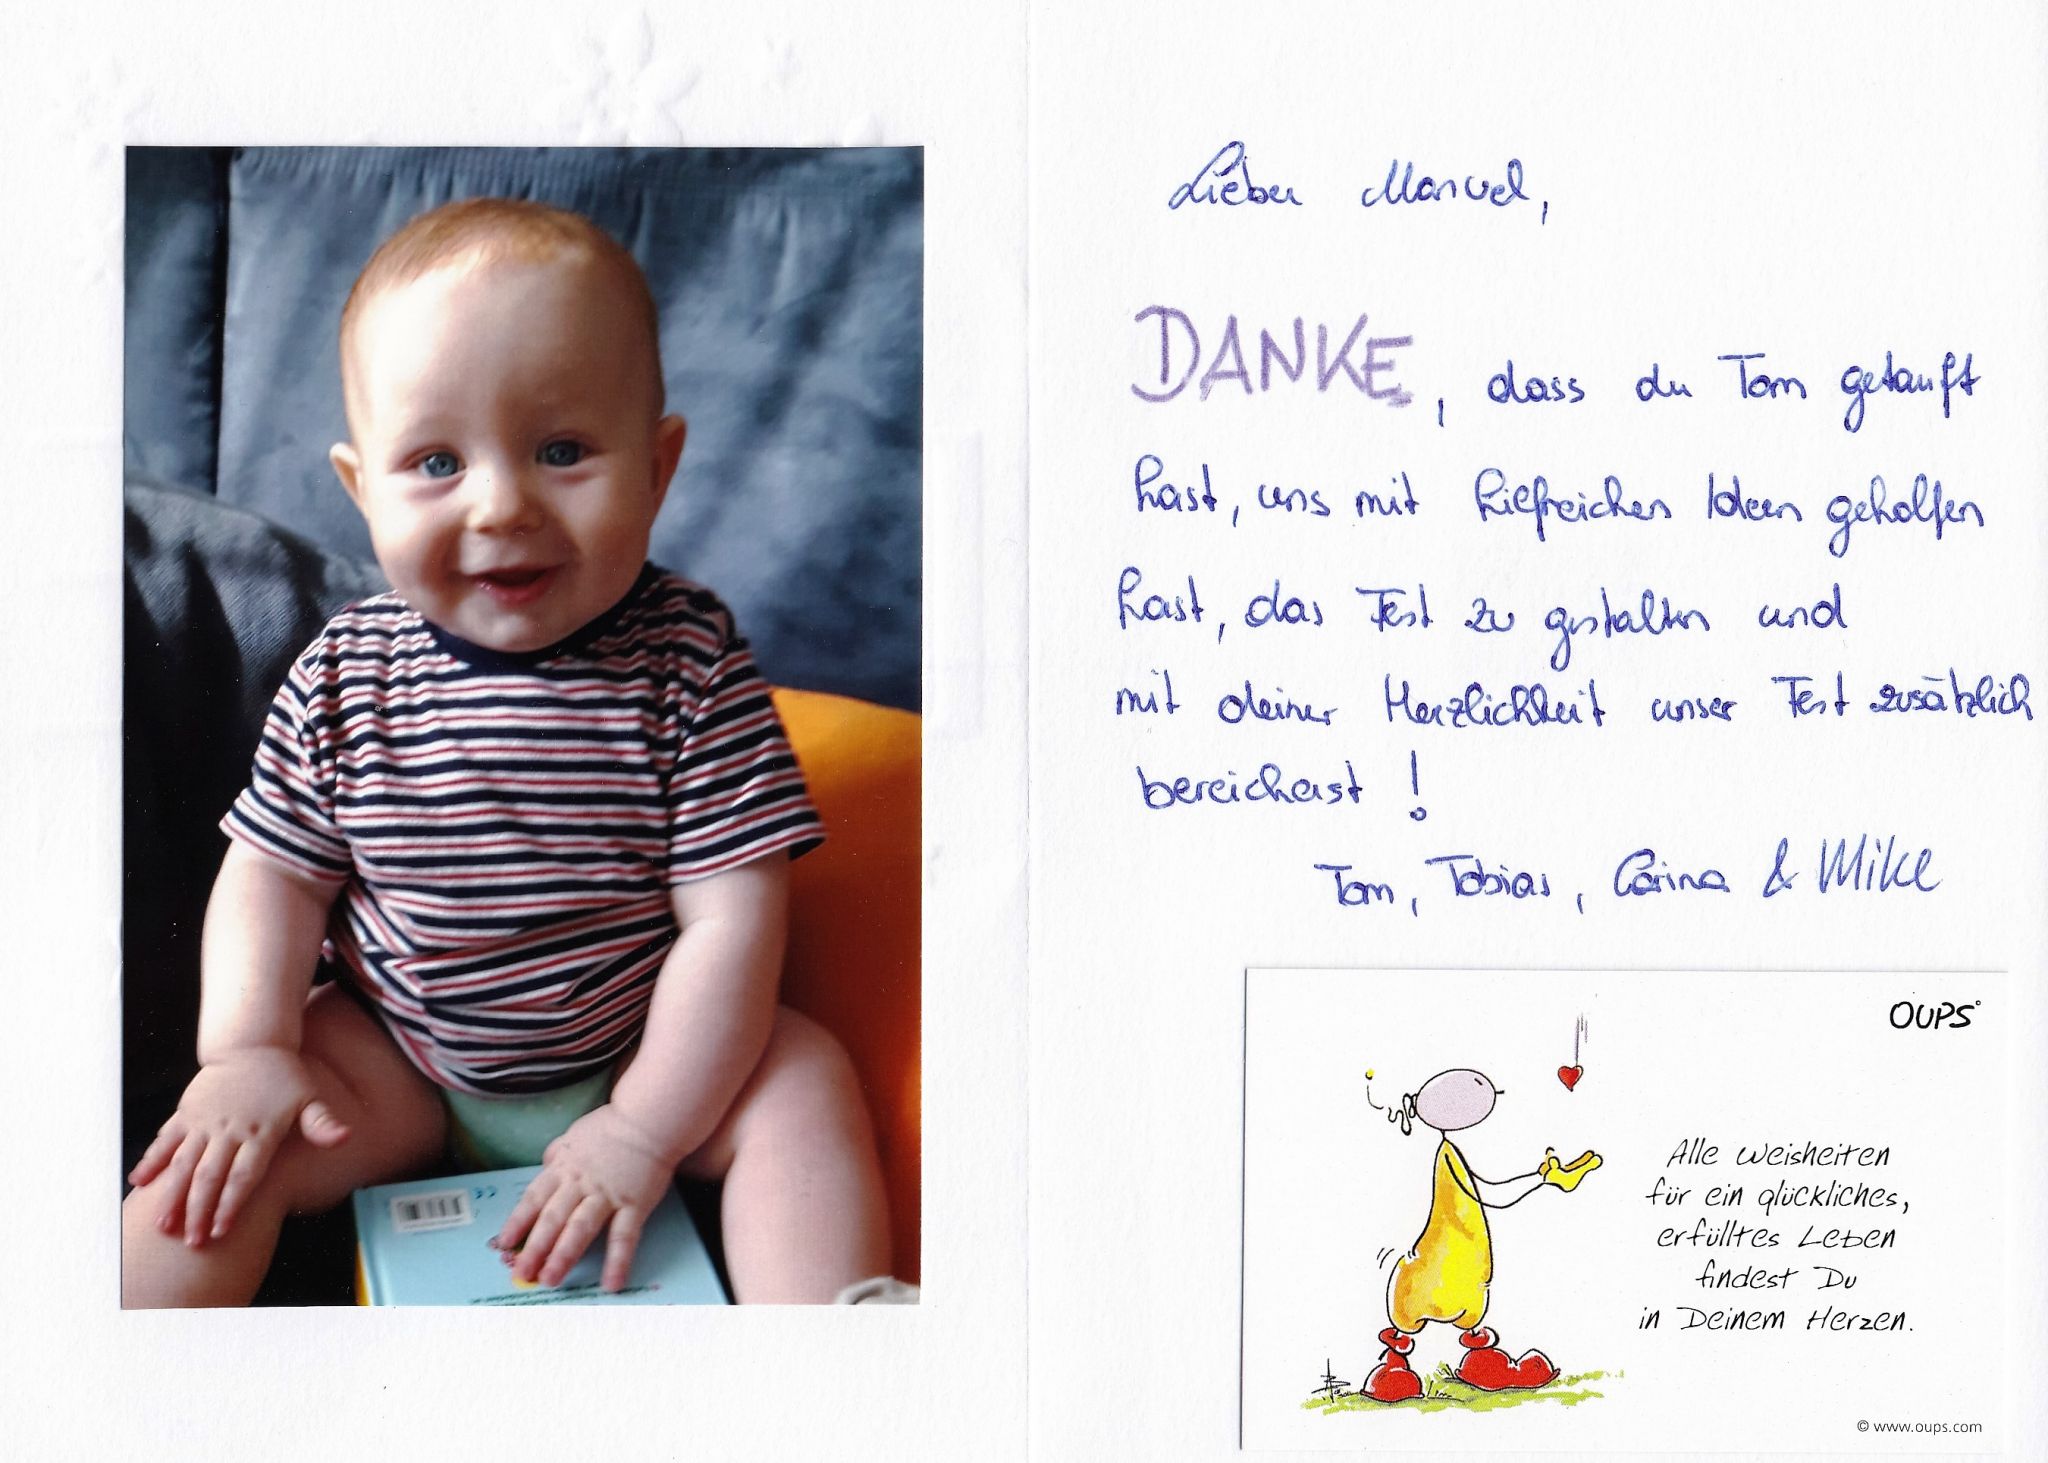 Lieber Manuel,
DANKE, dass du Tom getauft
hast, uns mit hilfreichen Ideen geholfen
hast, das Fest zu gestalten und
mit deiner Herzlichkeit unser Fest zusätzlich
bereicherst!
Tom, Tobias, Carina & Mike
OUPS°
Alle Weisheiten
für ein glückliches,
erfülltes Leben
findest Du
in Deinem Herzen.
© www.oups.com